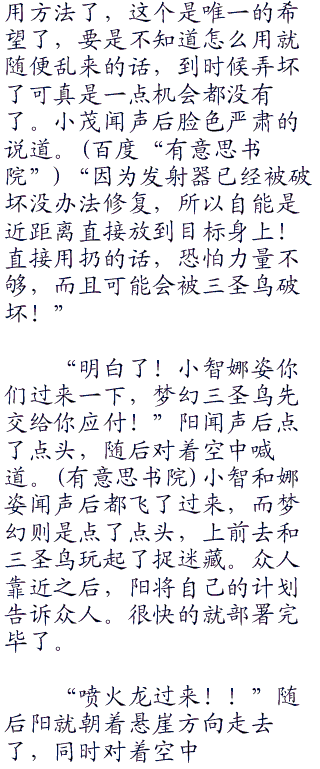 用方法了，这个是唯一的希
望了，要是不知道怎么用就
随便乱来的话，到时候弄坏
了可真是一点机会都没有
了。小茂闻声后脸色严肃的
说道。(百度“有意思书
院”)“因为发射器已经被破
坏没办法修复，所以自能是
近距离直接放到目标身上！
直接用扔的话，恐怕力量不
够，而且可能会被三圣鸟破
坏！”
“明白了！小智娜姿你
们过来一下，梦幻三圣鸟先
交给你应付！”阳闻声后点
了点头，随后对着空中喊
道。(有意思书院)小智和娜
姿闻声后都飞了过来，而梦
幻则是点了点头，上前去和
三圣鸟玩起了捉迷藏。众人
靠近之后，阳将自己的计划
告诉众人。很快的就部署完
毕了。
“喷火龙过来！！”随
后阳就朝着悬崖方向走去
了，同时对着空中